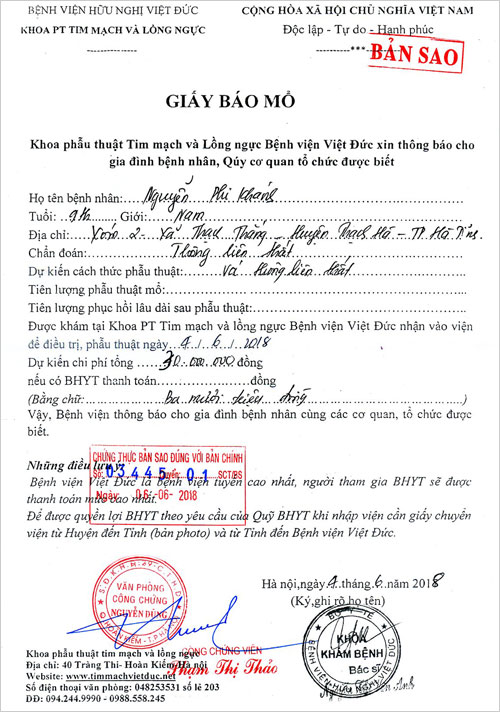 BỆNH VIỆN HỮU NGHỊ VIỆT ĐỨC
KHOA PT TIM MẠCH VÀ LỒNG NGỰC
-------------
CỘNG HÒA XÃ HỘI CHỦ NGHĨA VIỆT NAM
Độc lập - Tự do - Hạnh phúc
---------***---------
BẢN SAO
GIẤY BÁO MỔ
Khoa phẫu thuật Tim mạch và Lồng ngực Bệnh viện Việt Đức xin thông báo cho
gia đình bệnh nhân, Qúy cơ quan tổ chức được biết
Họ tên bệnh nhân: Nguyễn Phi Khánh
Tuổi: 9th Giới: Nam
Địa chỉ: Xóm 2 - Xã Thạch Thắng - Huyện Thạch Hà - TP Hà Tĩnh.
Chẩn đoán: Thông liên thất
Dự kiến cách thức phẫu thuật: Vá thông liên thất
Tiên lượng phẫu thuật mổ:
Tiên lượng phục hồi lâu dài sau phẫu thuật:
Được khám tại Khoa PT Tim mạch và lồng ngực Bệnh viện Việt Đức nhận vào viện
để điều trị, phẫu thuật ngày 4 / 6 / 2018
Dự kiến chi phí tổng 30.000.000 đồng
nếu có BHYT thanh toán đồng
(Bằng chữ: Ba mươi triệu đồng )
Vậy, Bệnh viện thông báo cho gia đình bệnh nhân cùng các cơ quan, tổ chức được
biết.
CHỨNG THỰC BẢN SAO ĐÚNG VỚI BẢN CHÍNH
Số: 03445 Quyển: 01 SCT/BS
Ngày: 06-06-2018
Những điều lưu ý:
Bệnh viện Việt Đức là bệnh viện tuyến cao nhất, người tham gia BHYT sẽ được
thanh toán mức cao nhất.
Để được quyền lợi BHYT theo yêu cầu của Quỹ BHYT khi nhập viện cần giấy chuyển
viện từ Huyện đến Tỉnh (bản photo) và từ Tỉnh đến Bệnh viện Việt Đức.
Hà nội, ngày 4 tháng 6 năm 2018
(Ký, ghi rõ họ tên)
VĂN PHÒNG
CÔNG CHỨNG
NGUYỄN DŨNG
BỘ Y TẾ
BỆNH VIỆN HỮU NGHỊ VIỆT ĐỨC
KHOA
KHÁM BỆNH
Bác sĩ
CÔNG CHỨNG VIÊN
Phạm Thị Thảo
Khoa phẫu thuật tim mạch và lồng ngực
Địa chỉ: 40 Tràng Thi- Hoàn Kiếm- Hà nội
Website: www.timmachvietduc.net
Số điện thoại văn phòng: 048253531 số lẻ 203
DĐ: 094.244.9990 - 0988.558.245